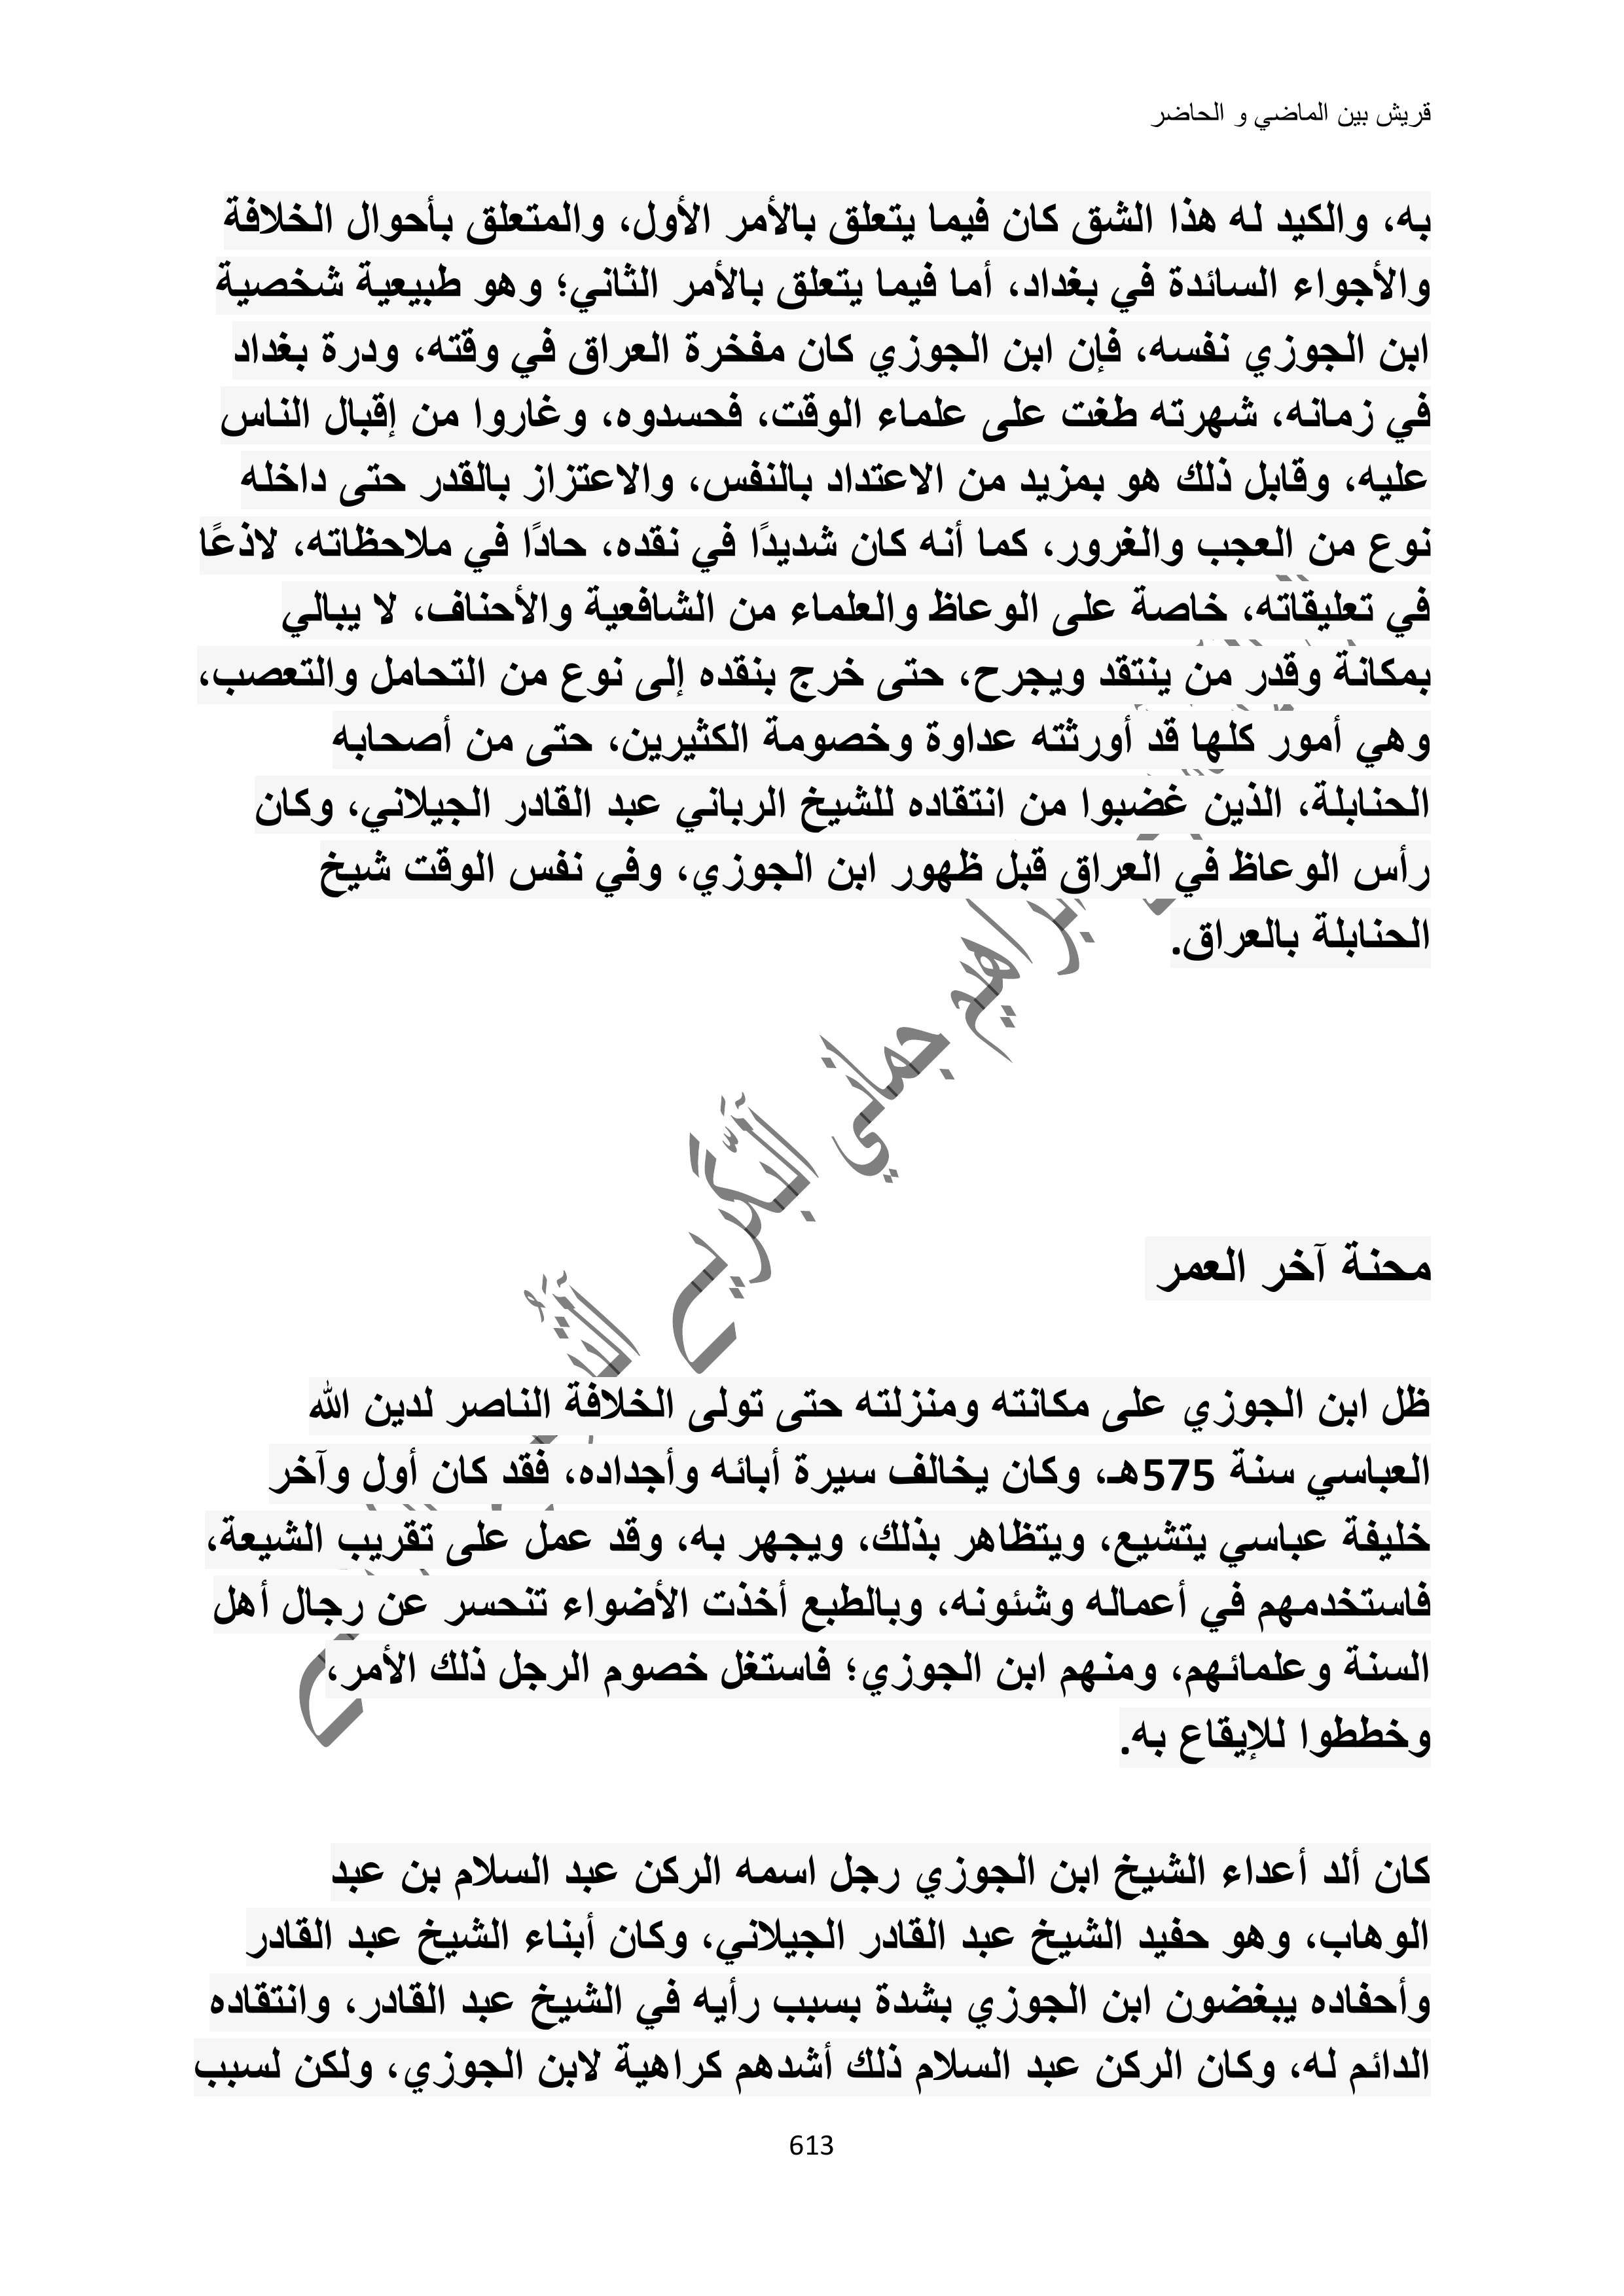 قريش بين الماضي و الحاضر
به، والكيد له هذا الشق كان فيما يتعلق بالأمر الأول، والمتعلق بأحوال الخلافة
والأجواء السائدة في بغداد، أما فيما يتعلق بالأمر الثاني؛ وهو طبيعية شخصية
ابن الجوزي نفسه، فإن ابن الجوزي كان مفخرة العراق في وقته، ودرة بغداد
في زمانه، شهرته طغت على علماء الوقت، فحسدوه، وغاروا من إقبال الناس
عليه، وقابل ذلك هو بمزيد من الاعتداد بالنفس، والاعتزاز بالقدر حتى داخله
نوع من العجب والغرور، كما أنه كان شديدًا في نقده، حادًا في ملاحظاته، لاذعًا
في تعليقاته، خاصة على الوعاظ والعلماء من الشافعية والأحناف، لا يبالي
بمكانة وقدر من ينتقد ويجرح، حتى خرج بنقده إلى نوع من التحامل والتعصب،
وهي أمور كلها قد أورثته عداوة وخصومة الكثيرين، حتى من أصحابه
الحنابلة، الذين غضبوا من انتقاده للشيخ الرباني عبد القادر الجيلاني، وكان
رأس الوعاظ في العراق قبل ظهور ابن الجوزي، وفي نفس الوقت شيخ
الحنابلة بالعراق.
محنة آخر العمر
ظل ابن الجوزي على مكانته ومنزلته حتى تولى الخلافة الناصر لدين الله
العباسي سنة 575هـ، وكان يخالف سيرة أبائه وأجداده، فقد كان أول وآخر
خليفة عباسي يتشيع، ويتظاهر بذلك، ويجهر به، وقد عمل على تقريب الشيعة،
فاستخدمهم في أعماله وشئونه، وبالطبع أخذت الأضواء تنحسر عن رجال أهل
السنة وعلمائهم، ومنهم ابن الجوزي؛ فاستغل خصوم الرجل ذلك الأمر،
وخططوا للإيقاع به.
كان ألد أعداء الشيخ ابن الجوزي رجل اسمه الركن عبد السلام بن عبد
الوهاب، وهو حفيد الشيخ عبد القادر الجيلاني، وكان أبناء الشيخ عبد القادر
وأحفاده يبغضون ابن الجوزي بشدة بسبب رأيه في الشيخ عبد القادر، وانتقاده
الدائم له، وكان الركن عبد السلام ذلك أشدهم كراهية لابن الجوزي، ولكن لسبب
613